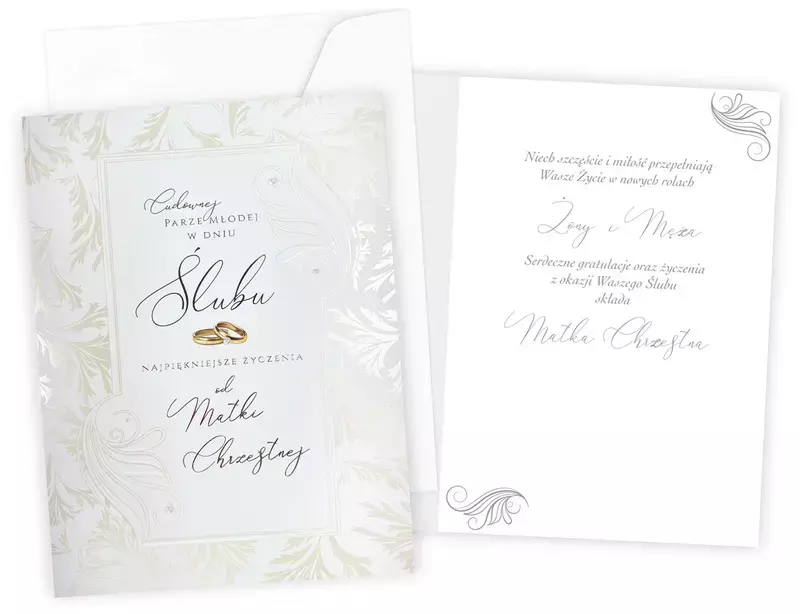 Cudownej
PARZE MŁODEJ
W DNIU
Ślubu
NAJPIĘKNIEJSZE ŻYCZENIA
od
Matki
Chrzestnej
Niech szczęście i miłość przepełniają
Wasze Życie w nowych rolach
Żony i Męża
Serdeczne gratulacje oraz życzenia
z okazji Waszego Ślubu
składa
Matka Chrzestna